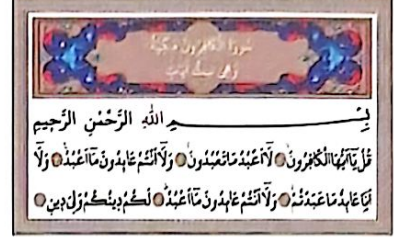 سورة الكافرون مكية
وهي ست آيات
بِسْمِ اللهِ الرَّحْمٰنِ الرَّحِيمِ
قُلْ يَاۤ اَيُّهَا الْكَافِرُونَۙ لَاۤ اَعْبُدُ مَا تَعْبُدُونَۙ وَلَاۤ اَنْتُمْ عَابِدُونَ مَاۤ اَعْبُدُۚ وَلَاۤ
اَنَا عَابِدٌ مَا عَبَدْتُمْۙ وَلَاۤ اَنْتُمْ عَابِدُونَ مَاۤ اَعْبُدُۜ لَكُمْ دِينُكُمْ وَلِيَ دِينِ